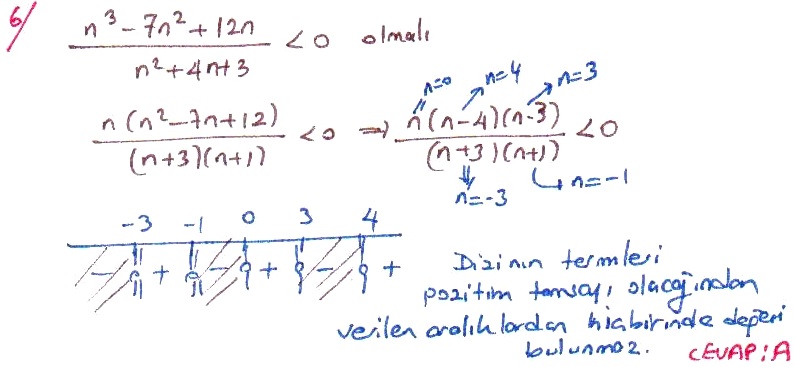 6/
n³ - 7n² + 12n / n² + 4n + 3 < 0 olmalı
n(n² - 7n + 12) / (n+3)(n+1) < 0 ⇒ n(n-4)(n-3) / (n+3)(n+1) < 0
n=0 n=4 n=3
n=-3 n=-1
-3 -1 0 3 4
- + - + - +
Dizinin termleri
pozitim tamsayı olacağından
verilen aralıklardan hiçbirinde değeri
bulunmaz. CEVAP: A